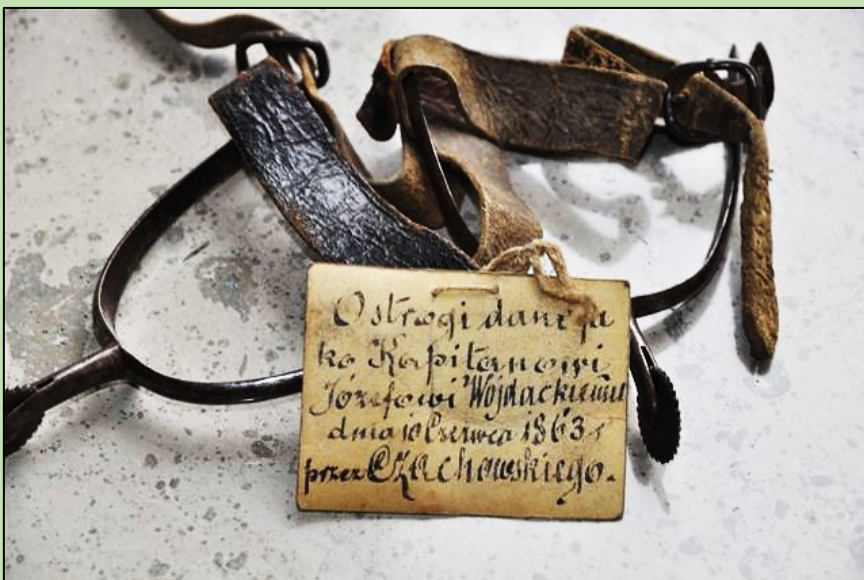 Ostrogi dane ja
ko Kapitanowi
Józefowi Wojdackiemu
dnia 10 Czerwca 1863 r
przez Czachowskiego.